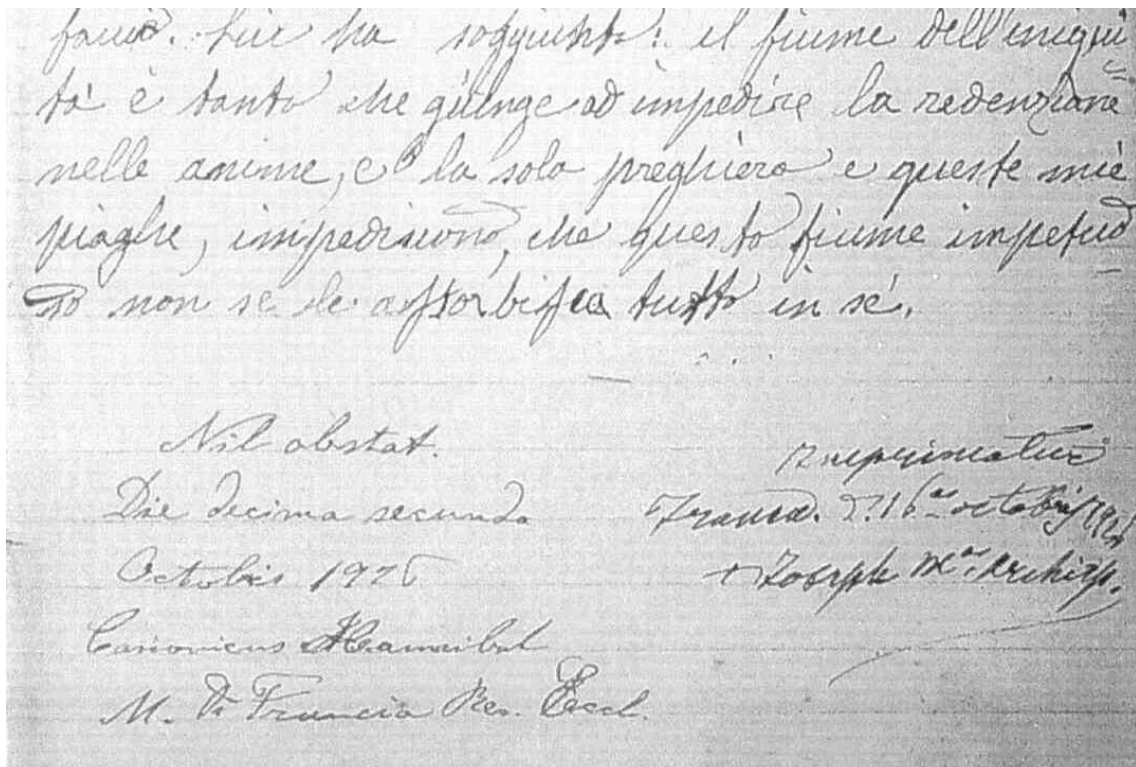 ha soggiunto: il fiume dell'iniqui
tà è tanto che giunge ad impedire la redenzione
nelle anime, e la sola preghiera e queste mie
piaghe, impediscono, che questo fiume impetuo
so non se le assorbisca tutto in sé.
Nil obstat.
Die decima secunda
Octobris 1926
Canonicus Hannibal
M. Di Francia Rev. Eccl.
Imprimatur
16 octobris
+ Joseph M. Archiep.